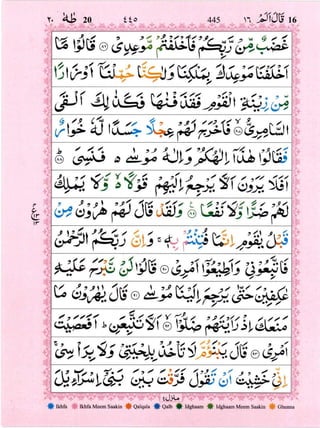 ٢٠ طٰهٰ 20 ٤٤٥ 445 قَالَ اَلَمْ ١٦ 16
غَضَبٌ مِّنْ رَّبِّكُمْ فَاَخْلَفْتُمْ مَّوْعِدِىْ ۝٨٦ قَالُوْا مَآ
اَخْلَفْنَا مَوْعِدَكَ بِمَلْكِنَا وَلٰكِنَّا حُمِّلْنَآ اَوْزَارًا
مِّنْ زِيْنَةِ الْقَوْمِ فَقَذَفْنٰهَا فَكَذٰلِكَ اَلْقَى
السَّامِرِىُّ ۝٨٧ فَاَخْرَجَ لَهُمْ عِجْلًا جَسَدًا لَّهٗ خُوَارٌ
فَقَالُوْا هٰذَآ اِلٰهُكُمْ وَاِلٰهُ مُوْسٰى ە فَنَسِىَ ۝٨٨
اَفَلَا يَرَوْنَ اَلَّا يَرْجِعُ اِلَيْهِمْ قَوْلًا ە وَّلَا يَمْلِكُ
لَهُمْ ضَرًّا وَّلَا نَفْعًا ۝٨٩ وَلَقَدْ قَالَ لَهُمْ هٰرُوْنُ مِنْ
قَبْلُ يٰقَوْمِ اِنَّمَا فُتِنْتُمْ بِهٖ ۚ وَاِنَّ رَبَّكُمُ الرَّحْمٰنُ
فَاتَّبِعُوْنِىْ وَاَطِيْعُوْٓا اَمْرِىْ ۝٩٠ قَالُوْا لَنْ نَّبْرَحَ عَلَيْهِ
عٰكِفِيْنَ حَتّٰى يَرْجِعَ اِلَيْنَا مُوْسٰى ۝٩١ قَالَ يٰهٰرُوْنُ مَا
مَنَعَكَ اِذْ رَاَيْتَهُمْ ضَلُّوْٓا ۝٩٢ اَلَّا تَتَّبِعَنِ ؕ اَفَعَصَيْتَ
اَمْرِىْ ۝٩٣ قَالَ يَبْنَؤُمَّ لَا تَاْخُذْ بِلِحْيَتِىْ وَلَا بِرَاْسِىْ ۚ
اِنِّىْ خَشِيْتُ اَنْ تَقُوْلَ فَرَّقْتَ بَيْنَ بَنِىْٓ اِسْرَآءِيْلَ
منزل ٤
Ikhfa Ikhfa Meem Saakin Qalqala Qalb Idghaam Idghaam Meem Saakin Ghunna